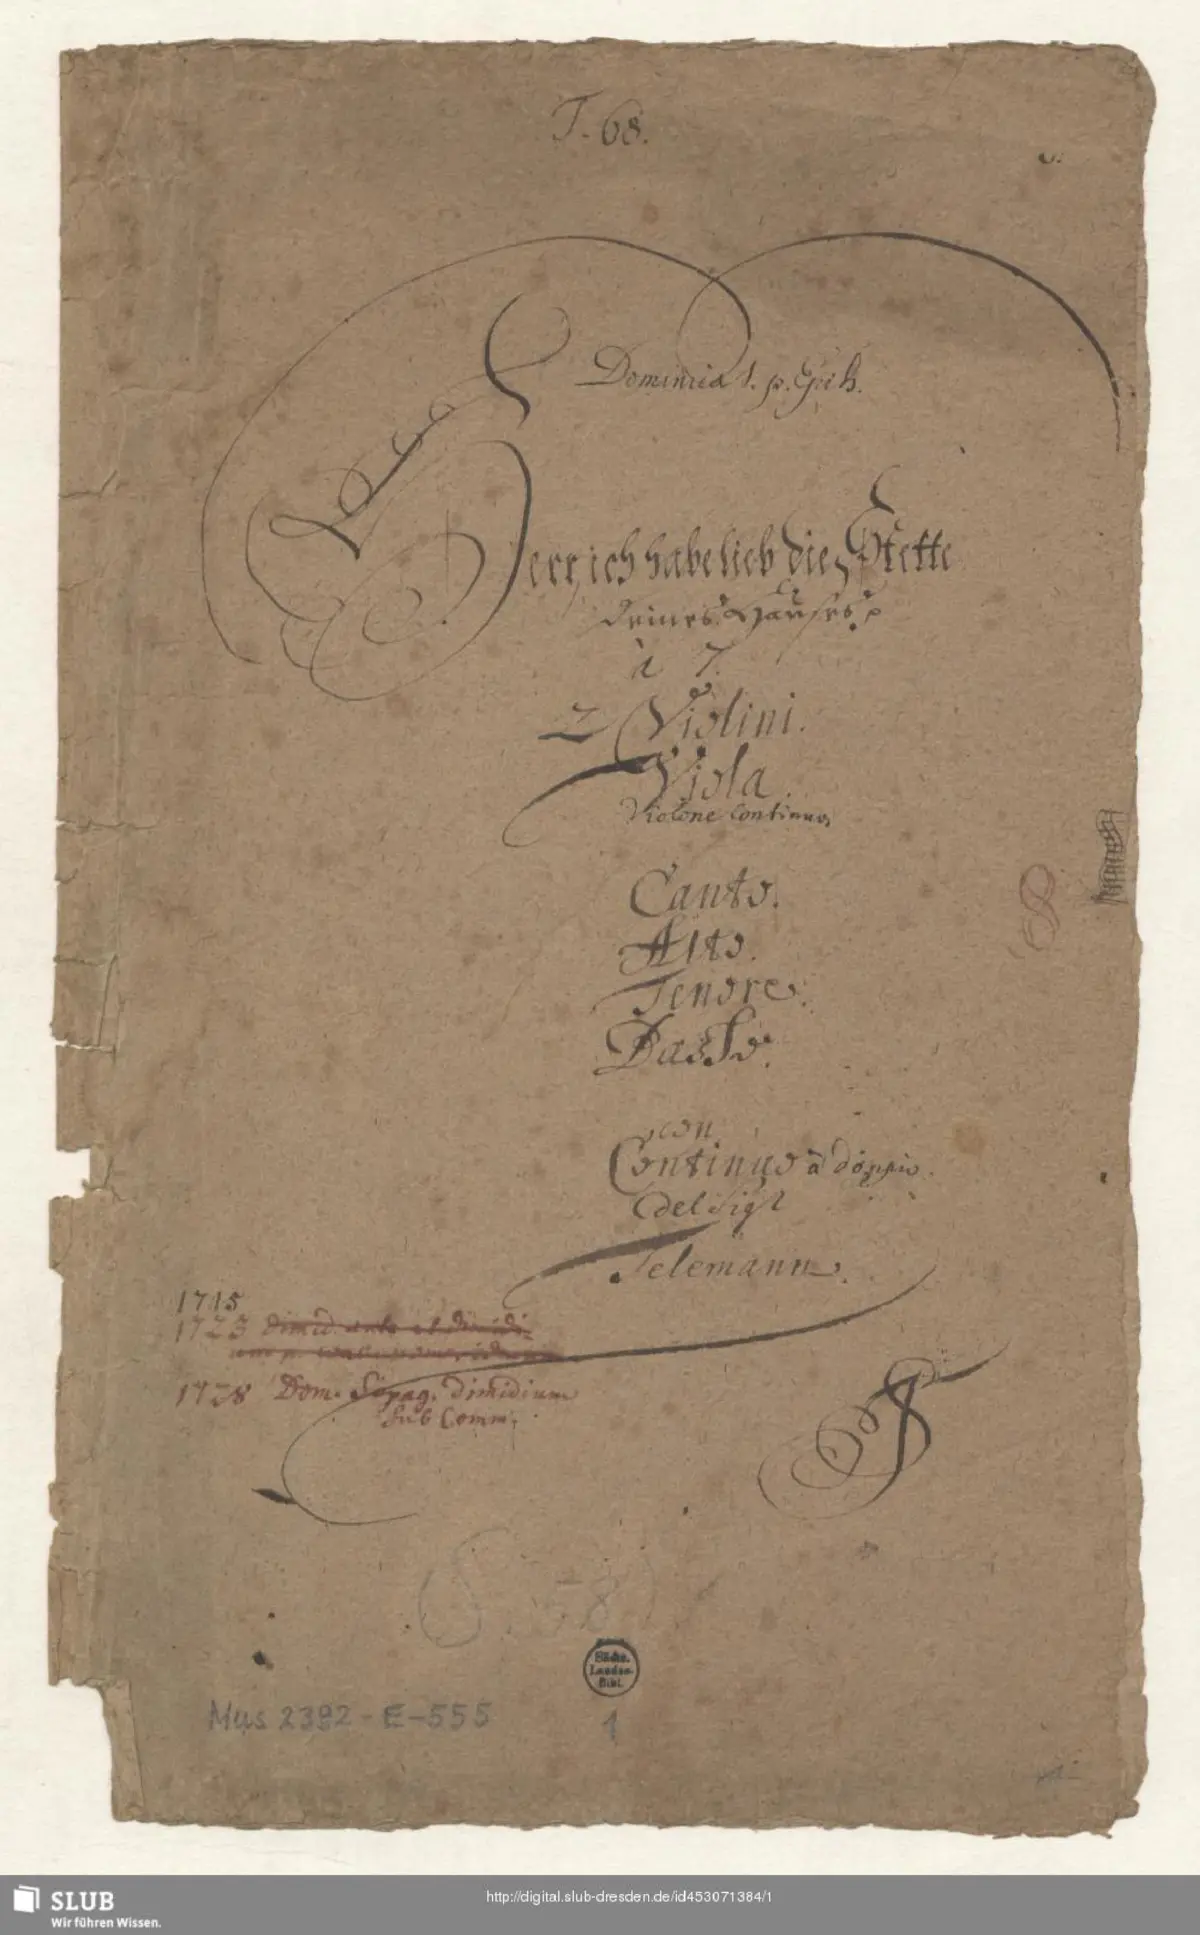 T. 68.
Dominica 1. p. Epiph.
Herr, ich habe lieb die Stette
deines Hauses.
à 7.
2 Violini.
Viola.
Violone Continuo,
Canto.
Alto.
Tenore.
Basso.
con
Continuo à doppio.
del Sigr
Telemann.
1715
1723 dimid. ante et dimidi-
1728 Dom. Sexag. dimidium
sub Comm:
Sächs.
Landes-
Bibl.
Mus 2392-E-555
1
SLUB
Wir führen Wissen.
http://digital.slub-dresden.de/id453071384/1